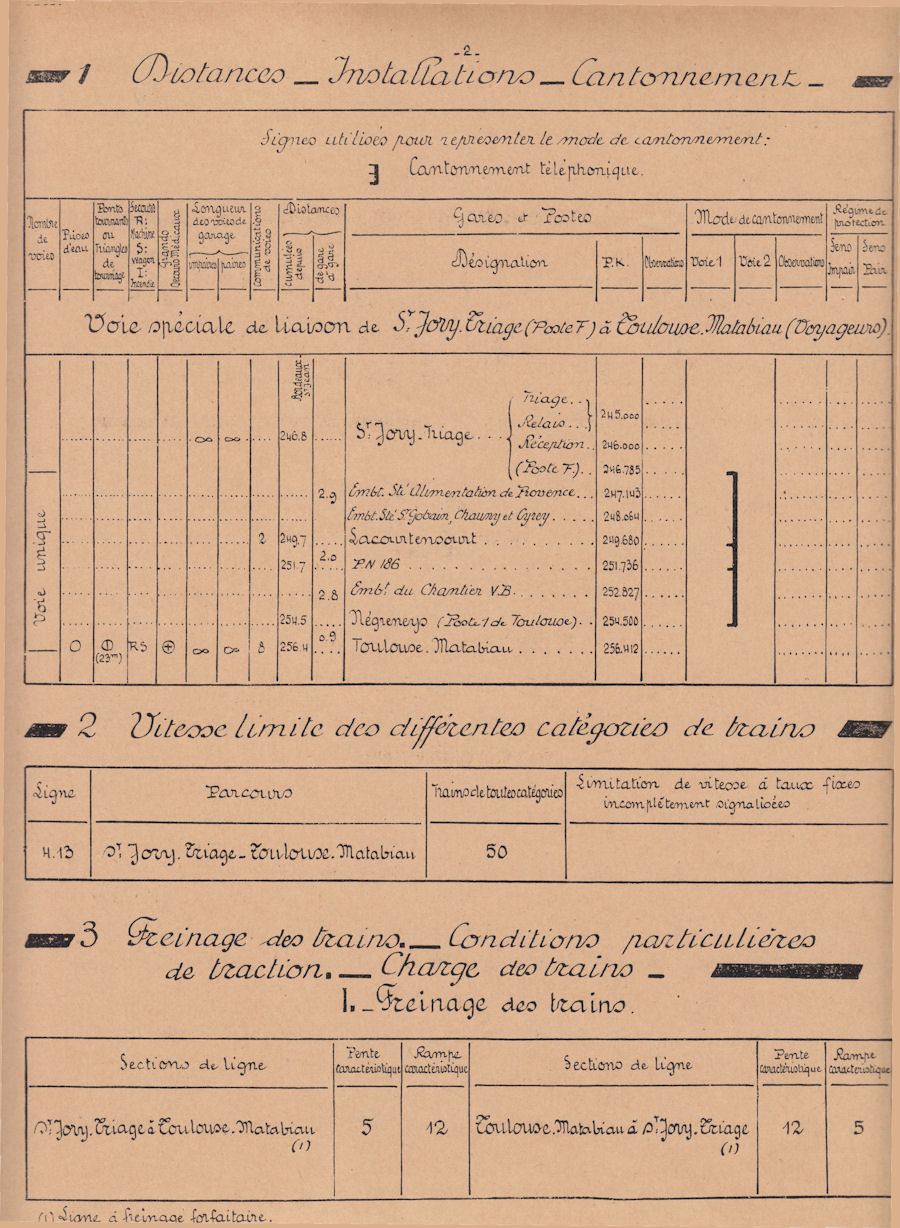 -2-
1 Distances _ Installations _ Cantonnement _
Signes utilisés pour représenter le mode de cantonnement:
Cantonnement téléphonique.
Nombre de voies
Prises d'eau
Ponts tournants ou Triangles de tournage
Secours R: Machine S: Wagon I: Incendie
Grands Secours Médicaux
Longueur des voies de garage
impaires
paires
communications de voies
Distances
cumulées depuis
de gare à gare
Gares et Postes
Désignation
P.K.
Observations
Mode de cantonnement
Voie 1
Voie 2
Observations
Régime de protection
Sens Impair
Sens Pair
Voie spéciale de liaison de St Jory.Triage (Poste F) à Toulouse.Matabiau (Voyageurs).
Bordeaux-St Jean
∞ ∞ 246.8 St Jory.Triage...
Triage..
Relais..
245.000
Réception.. 246.000
(Poste F).. 246.785
Voie unique
2.9 Embt. Sté Alimentation de Provence... 247.143
Embt. Sté St Gobain, Chauny et Cyrey..... 248.064
2 249.7 Lacourtencourt......... 249.680
2.0
251.7 PN 186............ 251.736
2.8 Embt du Chantier V.B....... 252.827
254.5 Négreneys (Poste 1 de Toulouse).. 254.500
0.9
O (23m) RS ∞ ∞ 8 256.4 Toulouse.Matabiau...... 256.412
2 Vitesse limite des différentes catégories de trains
Ligne
Parcours
Trains de toutes catégories
Limitation de vitesse à taux fixes incomplètement signalisées
4.13 St Jory.Triage_Toulouse.Matabiau 50
3 Freinage des trains._ Conditions particulières
de traction._ Charge des trains _
I._Freinage des trains.
Sections de ligne
Pente caractéristique
Rampe caractéristique
Sections de ligne
Pente caractéristique
Rampe caractéristique
St Jory.Triage à Toulouse.Matabiau 5 12 Toulouse.Matabiau à St Jory.Triage 12 5
(1) (1)
(1) Ligne à freinage forfaitaire.